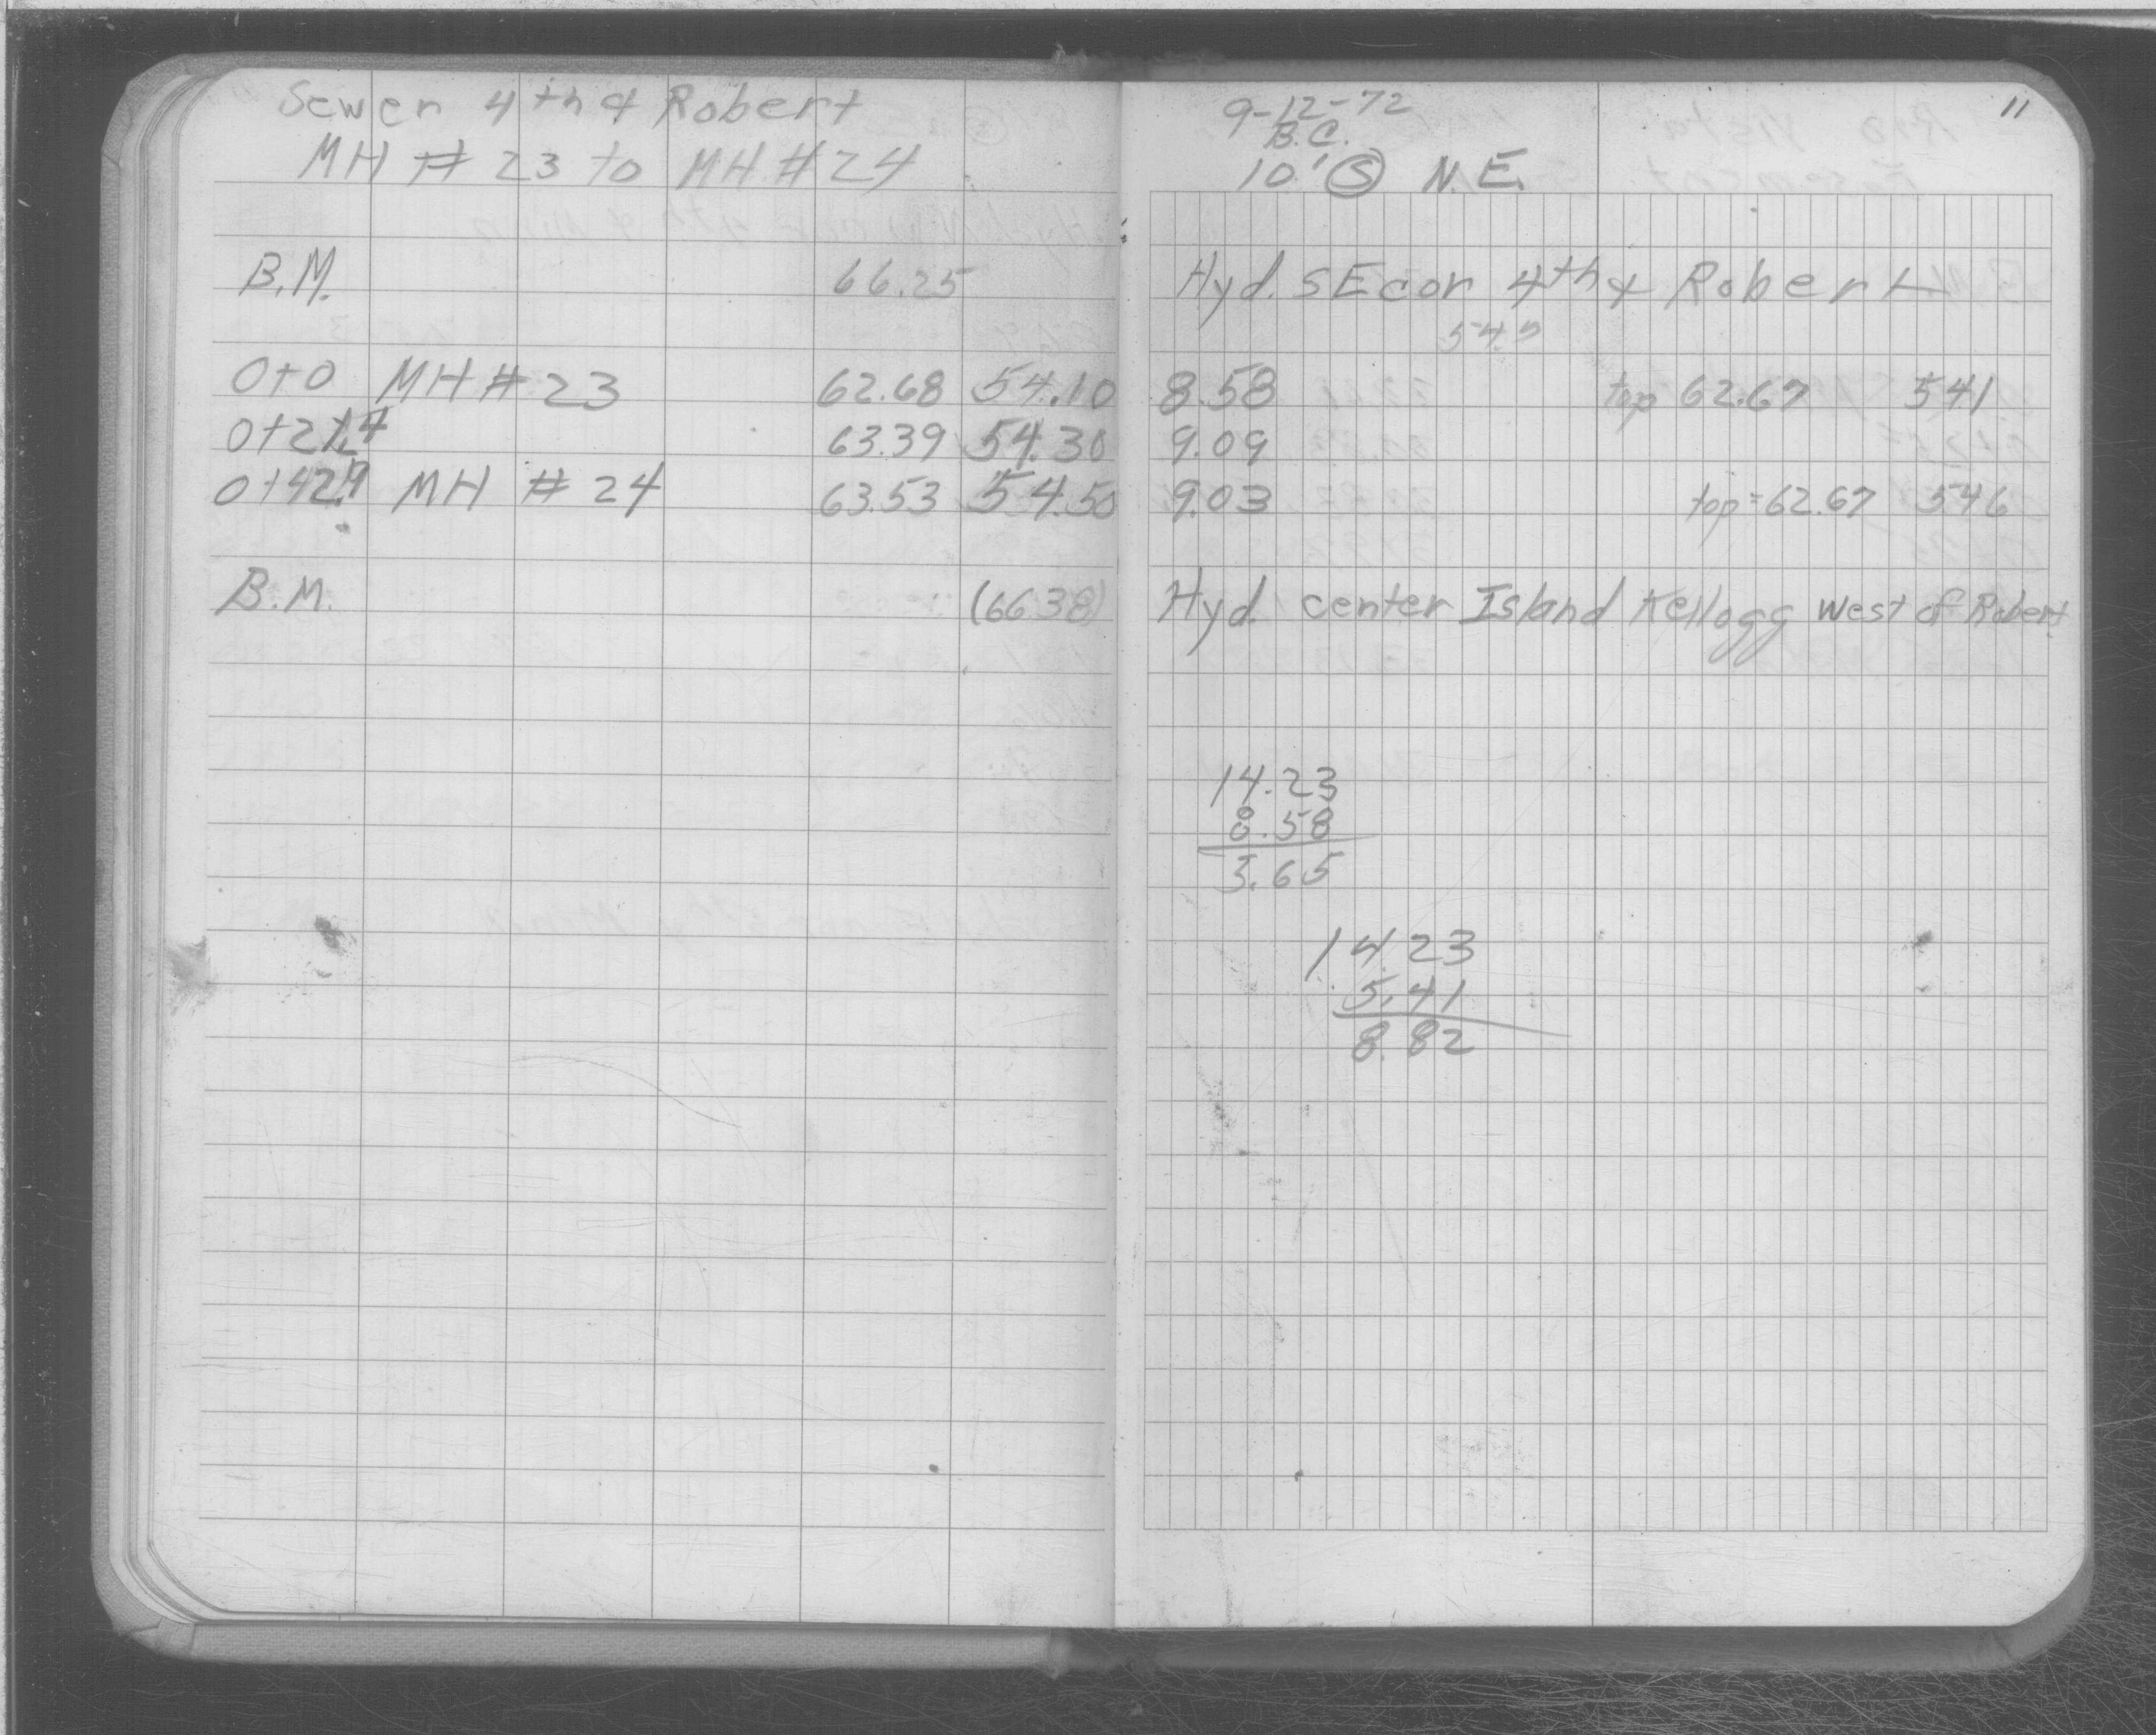 Sewer 4th & Robert
MH # 23 to MH # 24
B.M. 66.25
0+0 MH # 23 62.68 54.10
63.39 54.30
0+42.9 MH # 24 63.53 54.50
B.M. (66.38)
9-12-72 11
B.C.
10' S N.E.
Hyd. SE cor 4th & Robert
8.58 top 62.67 541
9.09
9.03 top = 62.67 546
Hyd. center Island Kellogg West of Robert
14.23
8.58
3.65
14.23
5.41
8.82